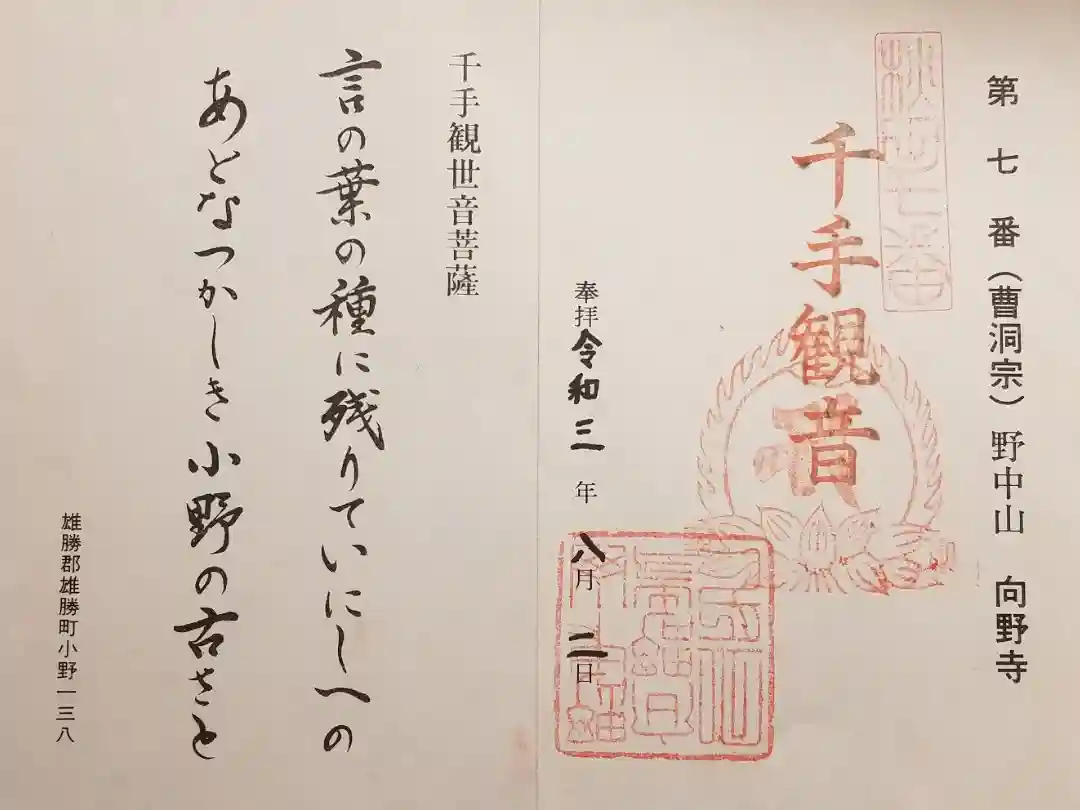 第七番(曹洞宗)野中山 向野寺
千手観音
奉拝令和三年八月二日
千手観世音菩薩
言の葉の種に残りていにしへの
あとなつかしき小野の古さと
雄勝郡雄勝町小野一三八